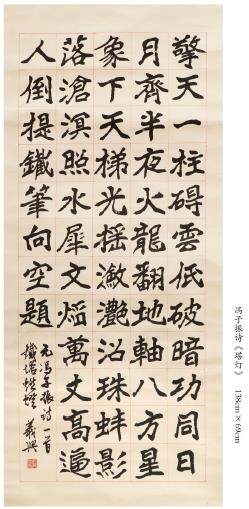 擎天一柱碍雲低破暗功同日
月齊半夜火龍翻地軸八方星
象下天梯光搖瀲灧沿珠蚌影
落滄溟照水犀文焰萬丈高遍
人倒提鐵筆向空題
元冯子振诗一首
鐵塔
冯子振诗《塔灯》 138cm×69cm